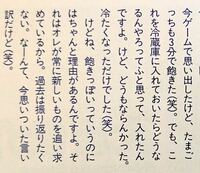 今ゲームで思い出したけど、たまご
っちも3分で飽きた(笑)。でも、こ
れを冷蔵庫に入れておいたらどうな
るんやろってふと思って、入れたん
ですよ。けど、どうもならんかった。
冷たくなっただけでした(笑)。
けどね、飽きっぽいっていうのに
はちゃんと理由があるんですよ。そ
れはオレが常に新しいものを追い求
めているから。過去は振り返りたく
ない。なーんて、今思いついた言い
訳だけど(笑)。